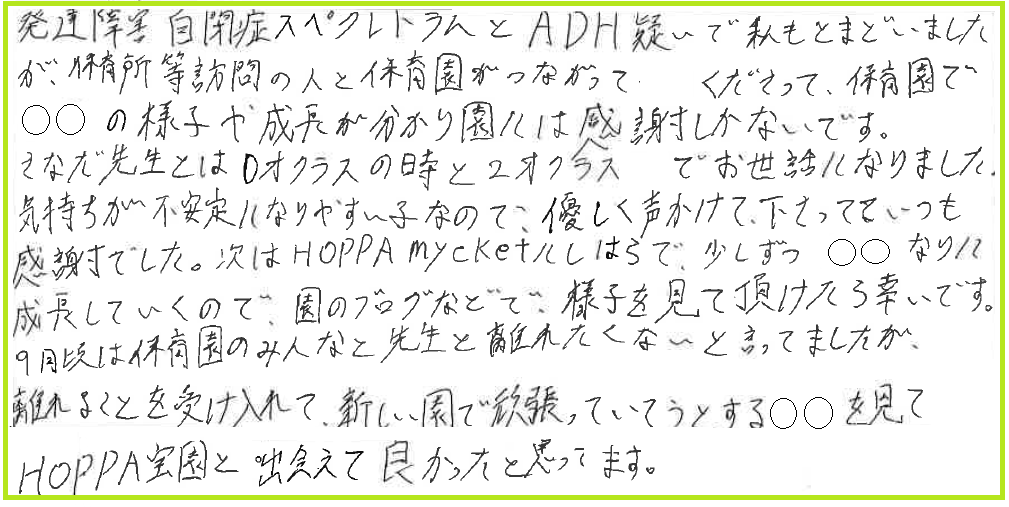 発達障害自閉症スペクトラムとADH疑いで私もとまどいました
が、保育所等訪問の人と保育園がつながって くださって、保育園で
○○の様子や成長が分かり園には感謝しかないです。
さなだ先生とは0才クラスの時と2才クラス でお世話になりました。
気持ちが不安定になりやすい子なので、優しく声かけて下さってていつも
感謝でした。次はHOPPA mycketにしはらで、少しずつ○○なりに
成長していくので、園のブログなどで、様子を見て頂けたら幸いです。
9月頃は保育園のみんなと先生と離れたくないと言ってましたが、
離れることを受け入れて、新しい園で頑張っていこうとする○○を見て
HOPPA 園と出会えて良かったと思ってます。